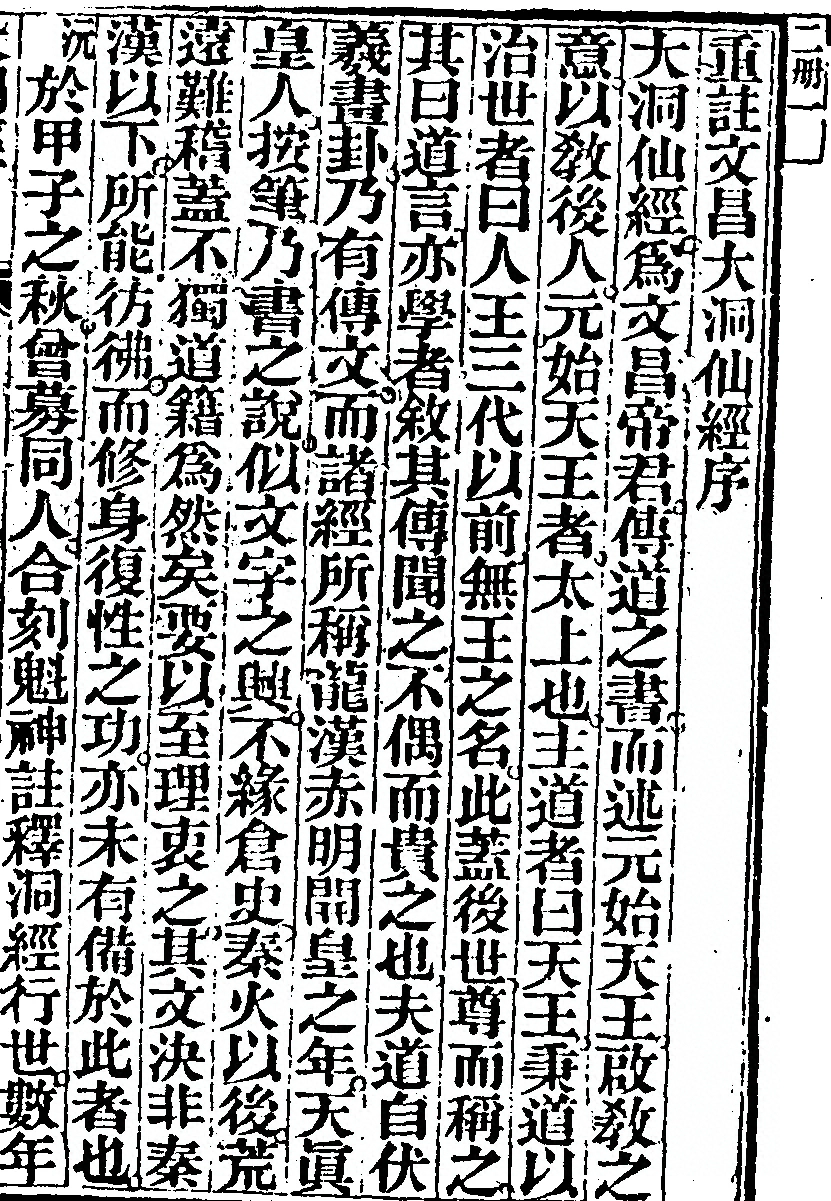 二册
重註文昌大洞仙經序
大洞仙經爲文昌帝君傳道之書而述元始天王啟敎之
意以敎後人元始天王者太上也主道者曰天王秉道以
治世者曰人王三代以前無王之名此蓋後世尊而稱之
其曰道言亦學者敘其傳聞之不偶而貴之也夫道自伏
羲畫卦乃有傳文而諸經所稱龍漢赤明開皇之年天眞
皇人按筆乃書之說似文字之興不緣倉史秦火以後荒
遠難稽蓋不獨道籍爲然矣要以至理衷之其文決非秦
漢以下所能彷彿而修身復性之功亦未有備於此者也
沅於甲子之秋曾募同人合刻魁神註釋洞經行世數年